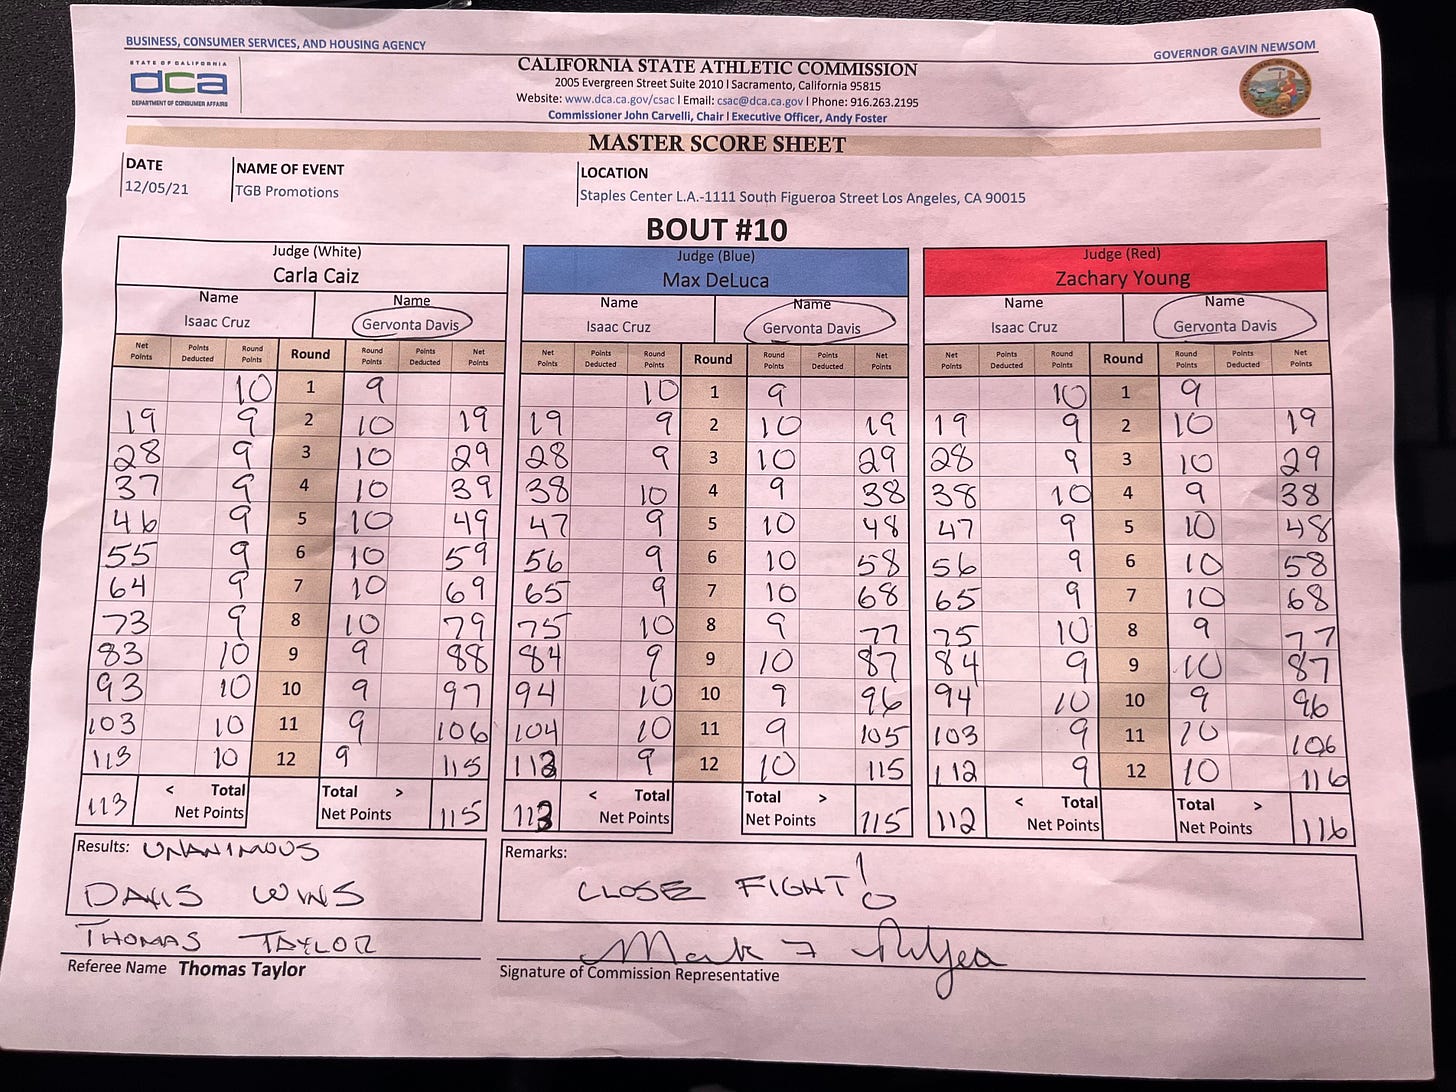 BUSINESS, CONSUMER SERVICES, AND HOUSING AGENCY
GOVERNOR GAVIN NEWSOM
STATE OF CALIFORNIA
dca
DEPARTMENT OF CONSUMER AFFAIRS
CALIFORNIA STATE ATHLETIC COMMISSION
2005 Evergreen Street Suite 2010 | Sacramento, California 95815
Website: www.dca.ca.gov/csac | Email: csac@dca.ca.gov | Phone: 916.263.2195
Commissioner John Carvelli, Chair | Executive Officer, Andy Foster
MASTER SCORE SHEET
DATE NAME OF EVENT LOCATION
12/05/21 TGB Promotions Staples Center L.A.-1111 South Figueroa Street Los Angeles, CA 90015
BOUT #10
Judge (White) Judge (Blue) Judge (Red)
Carla Caiz Max DeLuca Zachary Young
Name Name Name Name Name Name
Isaac Cruz Gervonta Davis Isaac Cruz Gervonta Davis Isaac Cruz Gervonta Davis
Net Points Points Deducted Round Points Round Round Points Points Deducted Net Points Net Points Points Deducted Round Points Round Round Points Points Deducted Net Points Net Points Points Deducted Round Points Round Round Points Points Deducted Net Points
10 1 9 10 1 9 10 1 9
19 9 2 10 19 19 9 2 10 19 19 9 2 10 19
28 9 3 10 29 28 9 3 10 29 28 9 3 10 29
37 9 4 10 39 38 10 4 9 38 38 10 4 9 38
46 9 5 10 49 47 9 5 10 48 47 9 5 10 48
55 9 6 10 59 56 9 6 10 58 56 9 6 10 58
64 9 7 10 69 65 9 7 10 68 65 9 7 10 68
73 9 8 10 79 75 10 8 9 77 75 10 8 9 77
83 10 9 9 88 84 9 9 10 87 84 9 9 10 87
93 10 10 9 97 94 10 10 9 96 94 10 10 9 96
103 10 11 9 106 104 10 11 9 105 103 9 11 10 106
113 10 12 9 115 113 9 12 10 115 112 9 12 10 116
113 < Total Net Points Total > Net Points 115 113 < Total Net Points Total > Net Points 115 112 < Total Net Points Total > Net Points 116
Results: UNANIMOUS
DAVIS WINS
Remarks:
CLOSE FIGHT!
THOMAS TAYLOR
Referee Name Thomas Taylor
Signature of Commission Representative